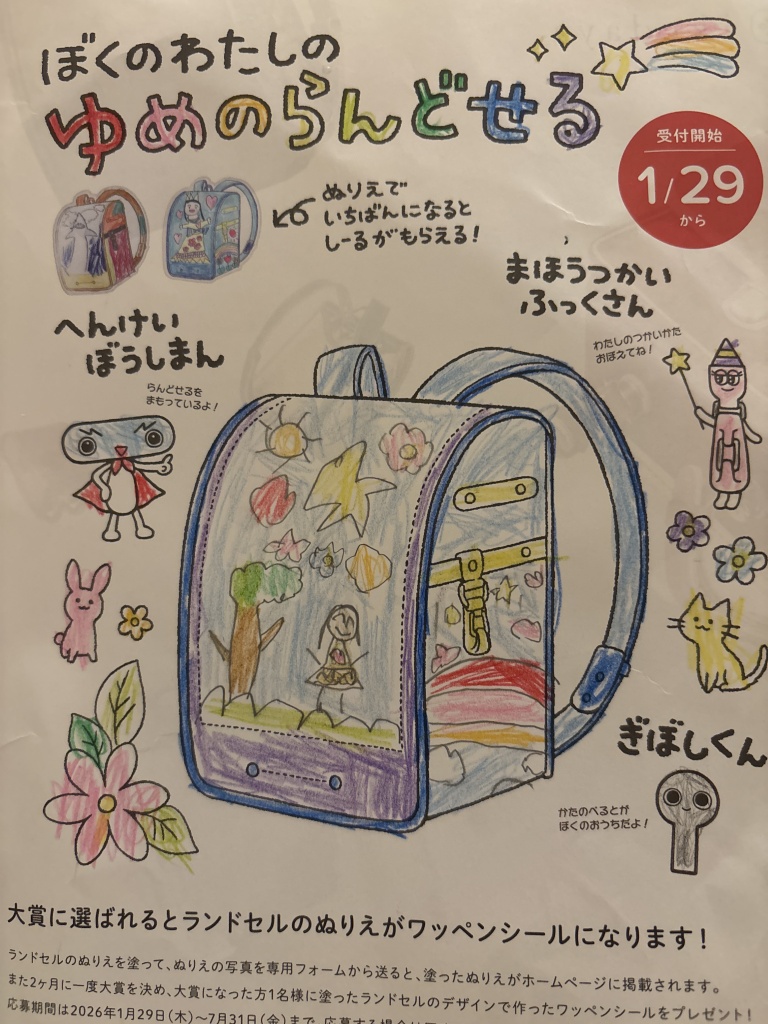 ぼくのわたしの
ゆめのらんどせる
受付開始
1/29
から
ぬりえで
いちばんになると
しーるがもらえる!
まほうつかい
ふっくさん
わたしのつかいかた
おぼえてね!
へんけい
ぼうしまん
らんどせるを
まもっているよ!
ぎぼしくん
かたのべるとが
ぼくのおうちだよ!
大賞に選ばれるとランドセルのぬりえがワッペンシールになります!
ランドセルのぬりえを塗って、ぬりえの写真を専用フォームから送ると、塗ったぬりえがホームページに掲載されます。
また2ヶ月に一度大賞を決め、大賞になった方1名様に塗ったランドセルのデザインで作ったワッペンシールをプレゼント!
応募期間は2026年1月29日(木)～7月31日(金)まで。応募する場合は